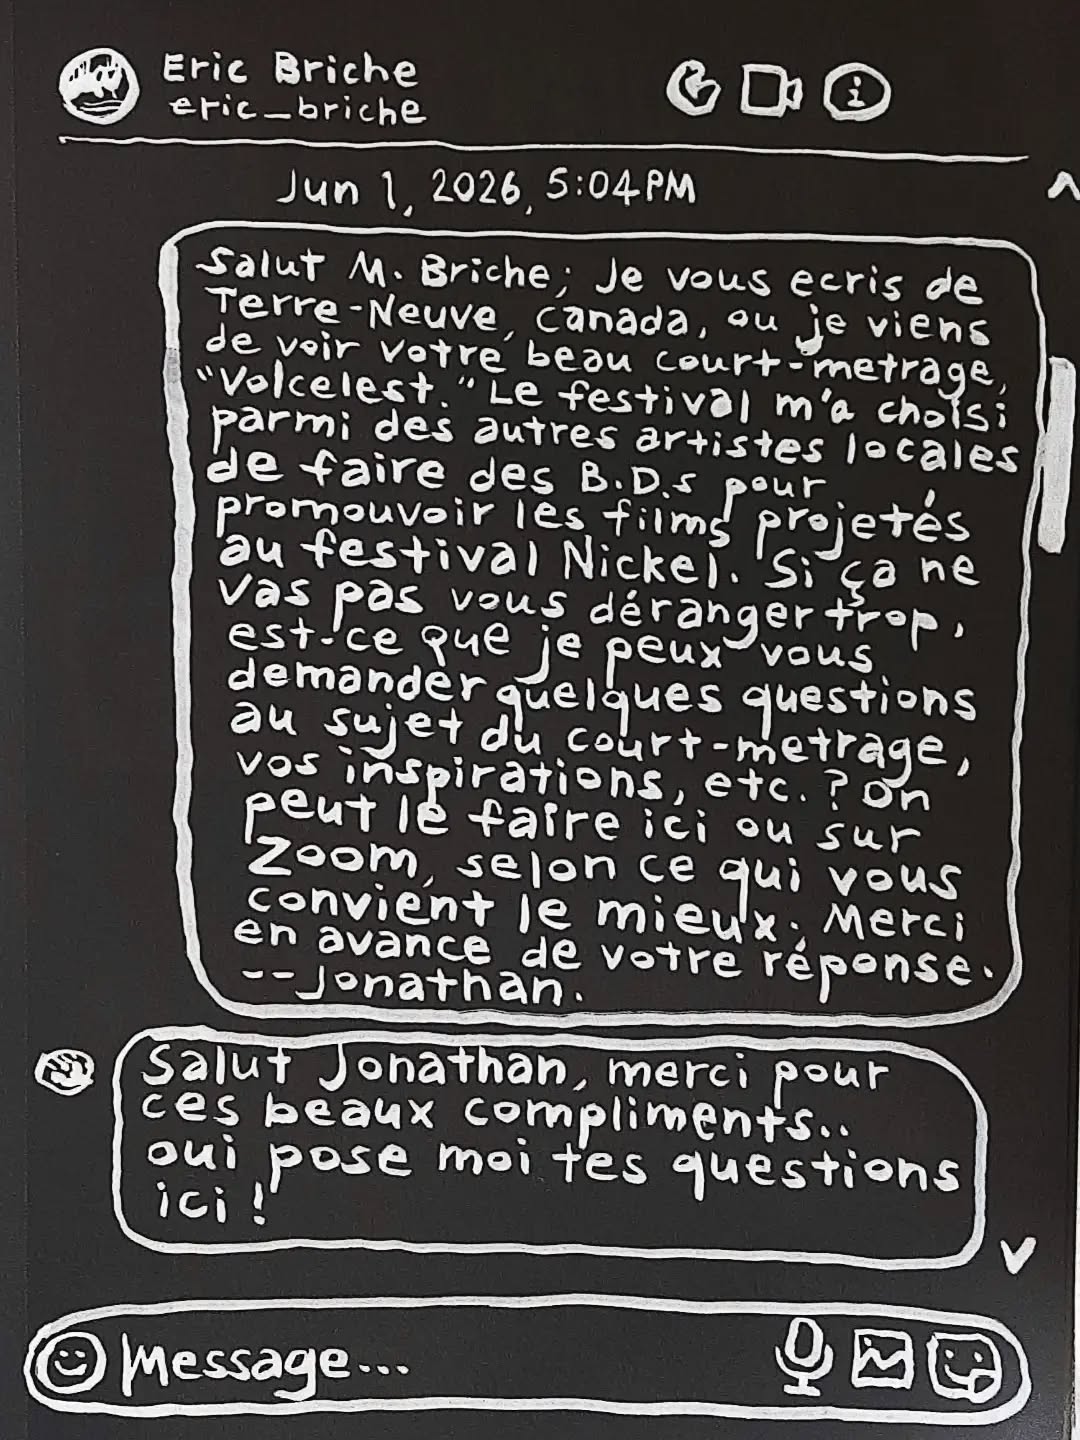 Eric Briche
eric_briche
Jun 1, 2026, 5:04PM
Salut M. Briche; Je vous ecris de
Terre-Neuve, Canada, ou je viens
de voir votre beau court-metrage,
"Volcelest." Le festival m'a choisi
parmi des autres artistes locales
de faire des B.D.s pour
promouvoir les films projetés
au festival Nickel. Si ça ne
vas pas vous déranger trop,
est-ce que je peux vous
demander quelques questions
au sujet du court-metrage,
vos inspirations, etc.? On
peut le faire ici ou sur
Zoom, selon ce qui vous
convient le mieux. Merci
en avance de votre réponse.
--Jonathan.
Salut Jonathan, merci pour
ces beaux compliments..
oui pose moi tes questions
ici!
Message...